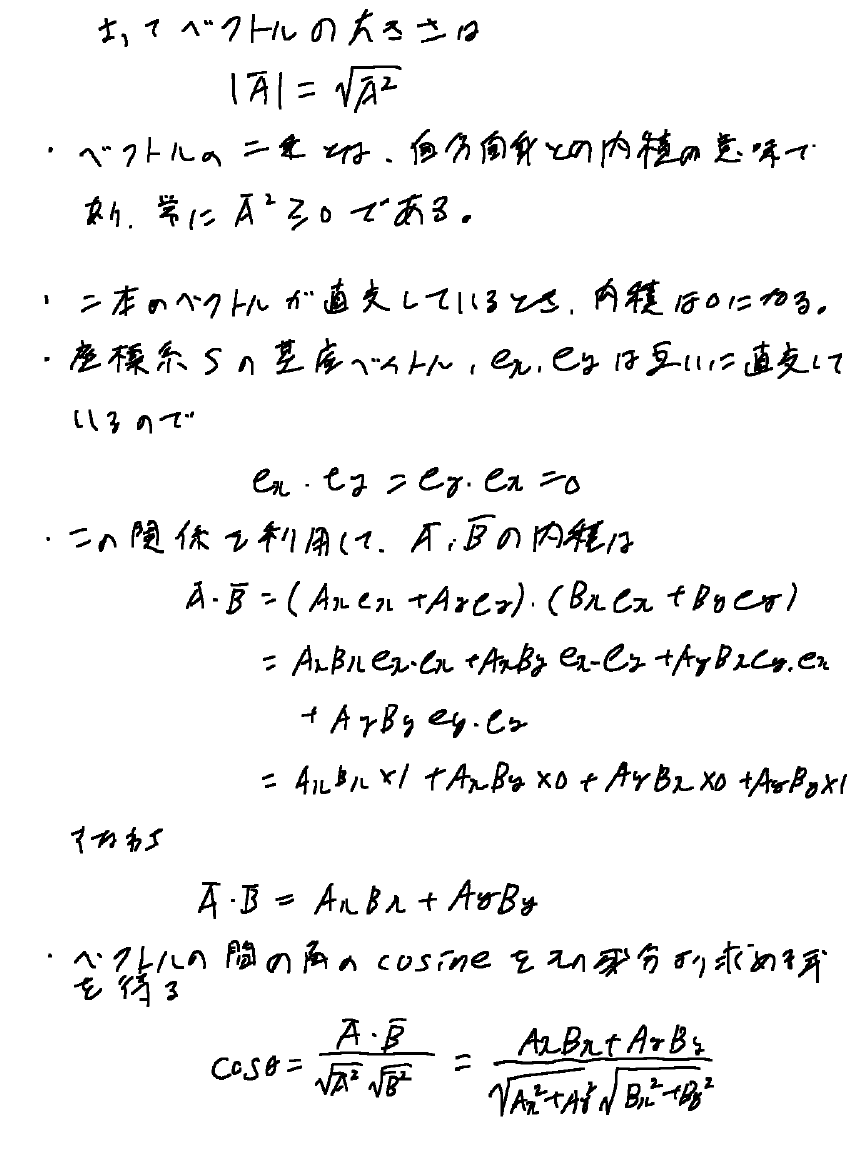 よってベクトルの大きさは
|Ā| = √Ā²
・ベクトルの二乗とは、自分自身との内積の意味で
あり、常に Ā² ≧ 0 である。
・二本のベクトルが直交しているとき、内積は0になる。
・座標系Sの基底ベクトル、ex, ey は互いに直交して
いるので
ex・ey = ey・ex = 0
・この関係を利用して、Ā, B̄の内積は
Ā・B̄ = (Ax ex + Ay ey)・(Bx ex + By ey)
= AxBx ex・ex + AxBy ex・ey + AyBx ey・ex
+ AyBy ey・ey
= AxBx×1 + AxBy×0 + AyBx×0 + AyBy×1
すなわち
Ā・B̄ = AxBx + AyBy
・ベクトルの間の角のcosineをその成分より求める式
を得る
cosθ = Ā・B̄ / √Ā² √B̄² = AxBx + AyBy / √Ax²+Ay² √Bx²+By²